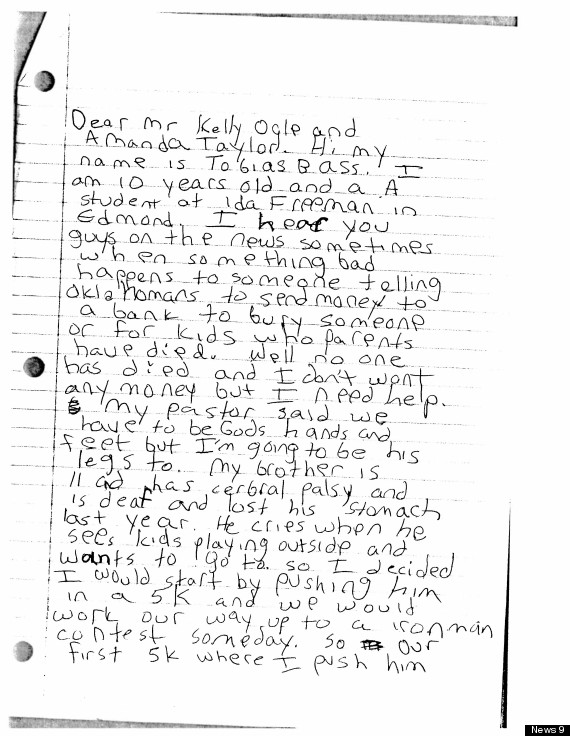 Dear Mr Kelly Ogle and
Amanda Taylor. Hi my
name is Tobias Bass. I
am 10 years old and a A
student at Ida Freeman in
Edmond. I hear you
guys on the news sometimes
when something bad
happens to someone telling
Oklahomans to send money to
a bank to bury someone
or for kids who parents
have died. Well no one
has died and I don't want
any money but I need help.
My pastor said we
have to be Gods hands and
feet but I'm going to be his
legs to. My brother is
11 and has cerbral palsy and
is deaf and lost his stomach
last year. He cries when he
sees kids playing outside and
wants to go to. so I decided
I would start by pushing him
in a 5K and we would
work our way up to a ironman
contest someday. So our
first 5k where I push him
News 9